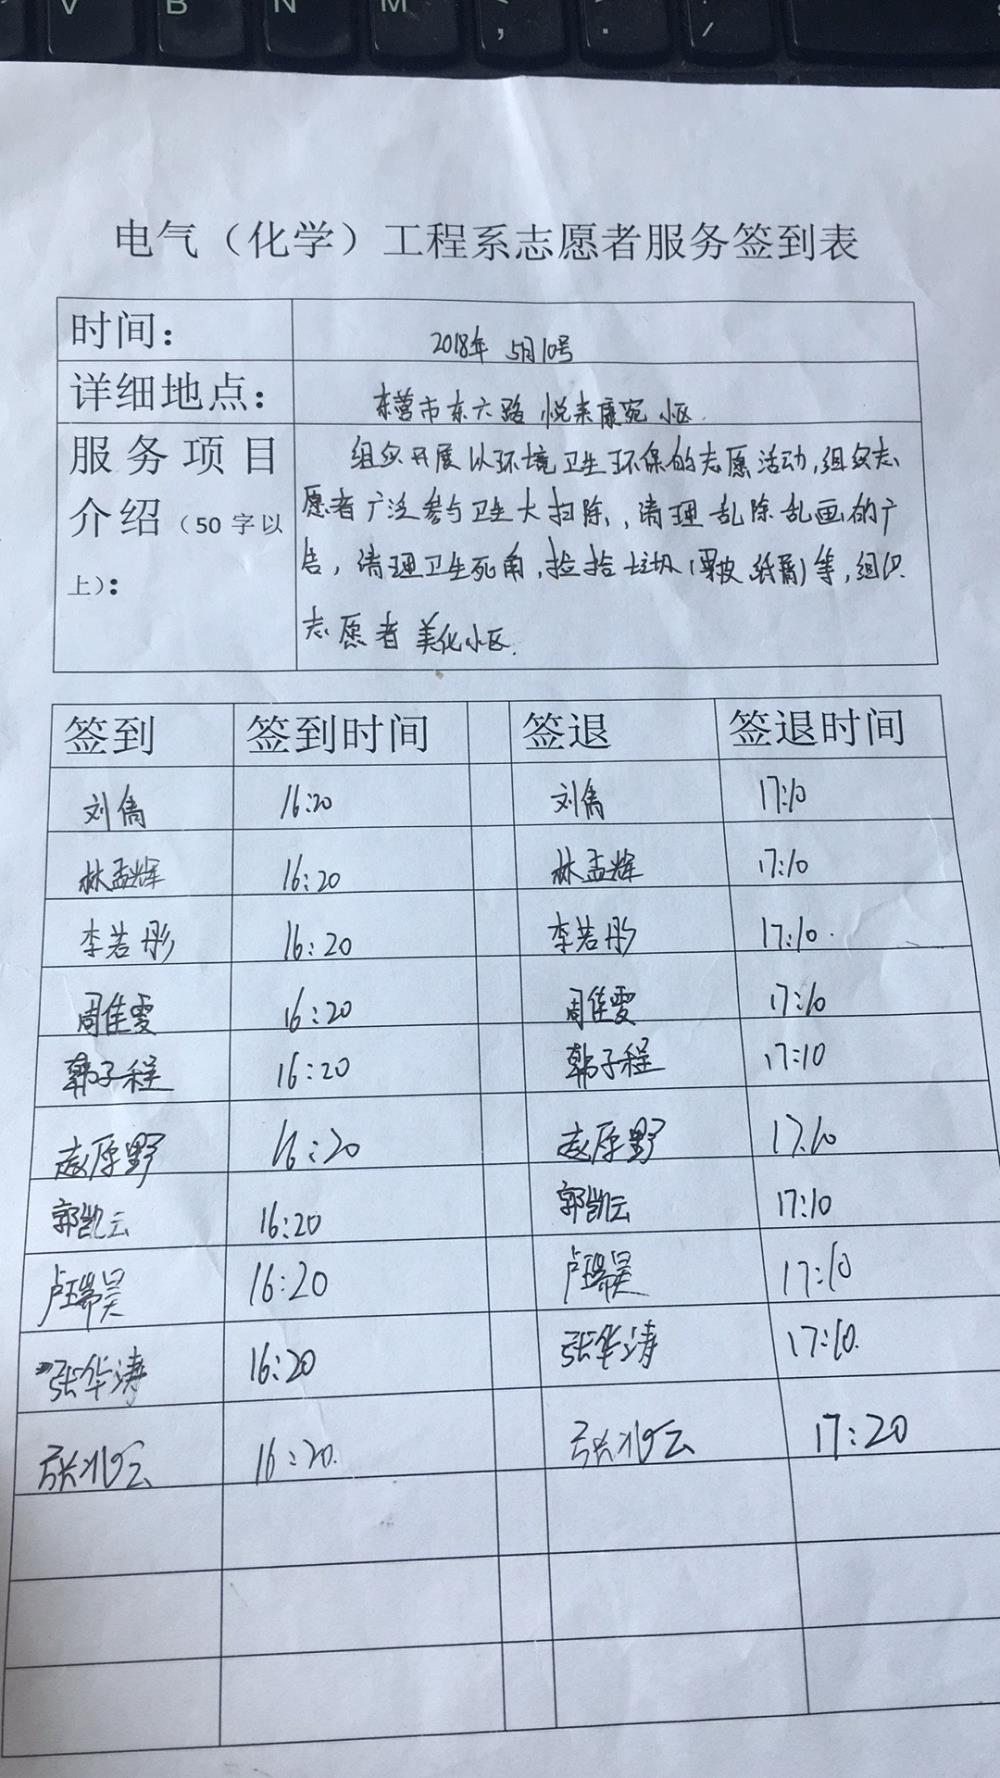 V B N M < > /
, .
电气（化学）工程系志愿者服务签到表
时间： 2018年 5月10号
详细地点： 东营市东六路 悦来康宛 小区.
服务项目介绍（50字以上）：
组织开展以环境卫生环保的志愿活动,组织志
愿者广泛参与卫生大扫除,,清理乱除乱画的广
告,清理卫生死角,捡拾垃圾(果皮 纸屑)等,组织
志愿者 美化小区.
签到 签到时间 签退 签退时间
刘隽 16:20 刘隽 17:10
林孟辉 16:20 林孟辉 17:10
李若彤 16:20 李若彤 17:10.
周佳雯 16:20 周佳雯 17:10
韩子程 16:20 韩子程 17:10
赵原野 16:20 赵原野 17:10
郭凯云 16:20 郭凯云 17:10
卢瑞昊 16:20 卢瑞昊 17:10
张华涛 16:20 张华涛 17:10.
16:20. 17:20